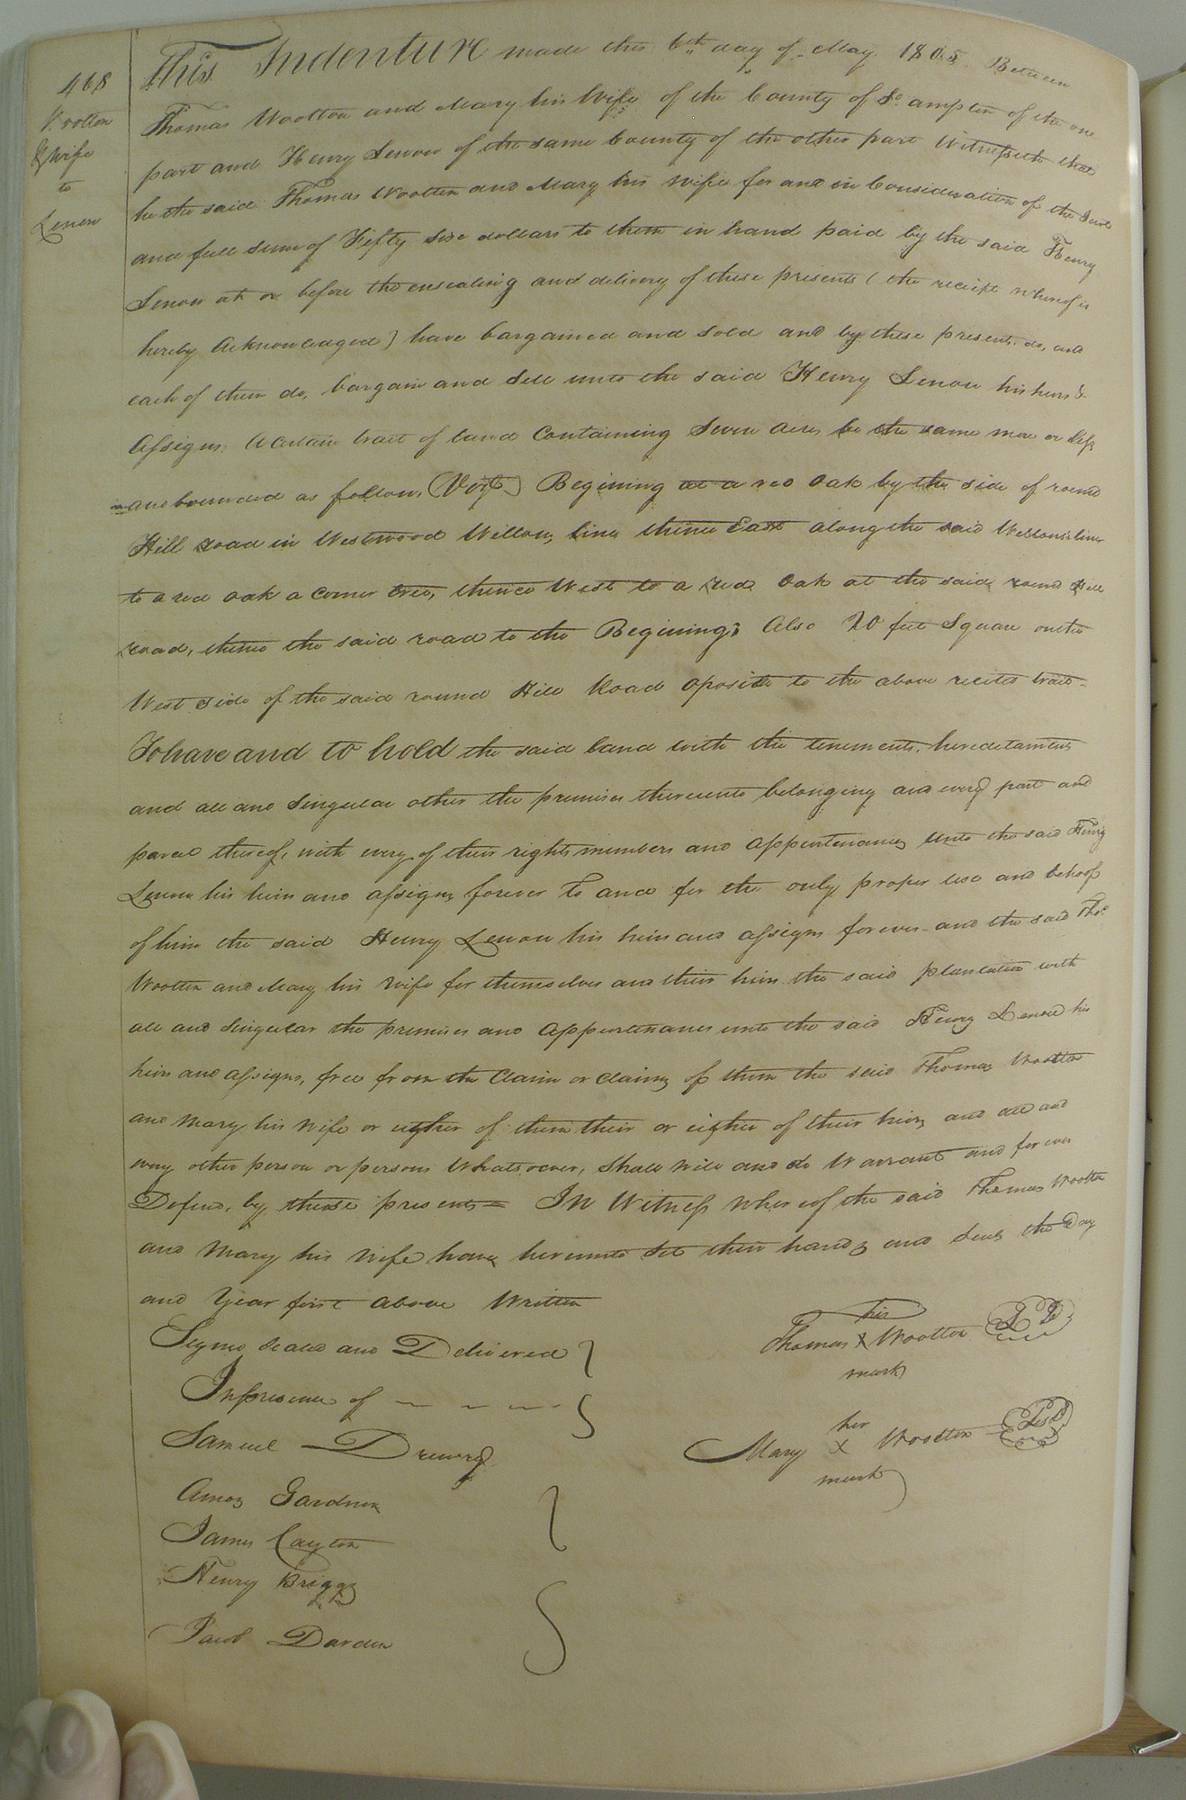 468
Wootton
& Wife
to
Lenow
This Indenture made this 6th day of May 1805 Between
Thomas Wootton and Mary his Wife of the County of So ampton of the one
part and Henry Lenow of the same County of the other part Witnesseth that
he the said Thomas Wootten and Mary his wife for and in Consideration of the Just
and full sum of Fifty Six dollars to them in hand paid by the said Henry
Lenow at or before the ensealing and delivery of these presents (the receipt whereof is
hereby Acknowledged) have bargained and sold and by these presents, do, and
each of them do, bargain and Sell unto the said Henry Lenow his heirs &
Assigns, A certain tract of land Containing Seven acres be the same more or less
and bounded as follows, (Vizt) Begining at a red oak by the side of round
Hill road in Westwood Wellons, line thence East along the said Wellons's line
to a red oak a corner tree, thence West to a red oak at the said round Hill
road, thence the said road to the Begining; Also 20 feet Square on the
West side of the said round Hill Road oposite to the above recited tract
To have and to hold the said land with the tenements, hereditaments
and all and Singular other the premises thereunto belonging and every part and
parcel thereof, with every of their rights members and appurtenances unto the said Henry
Lenow his heirs and assigns forever To and for the only proper use and behoof
of him the said Henry Lenow his heirs and assigns forever and the said Thos
Wootten and Mary his wife for themselves and their heirs the said plantation with
all and Singular the premises and appurtenances unto the said Henry Lenow his
heirs and assigns, free from the Claim or claims of them the said Thomas Wootten
and Mary his wife or eigther of them their or eigther of their heirs, and all and
every other person or persons Whatsoever, Shall will and do Warrant and forever
Defend, by these presents = In Witness whereof the said Thomas Wootten
and Mary his wife have hereunto Set their hands and Seals the Day
and Year first above Written
Signed Sealed and Delivered
In presence of
his
Thomas X Wootton LS
mark
Samuel Drewry
her
Mary X Wootten LS
mark
Amos Gardner
James Clayton
Henry Briggs
Jacob Darden